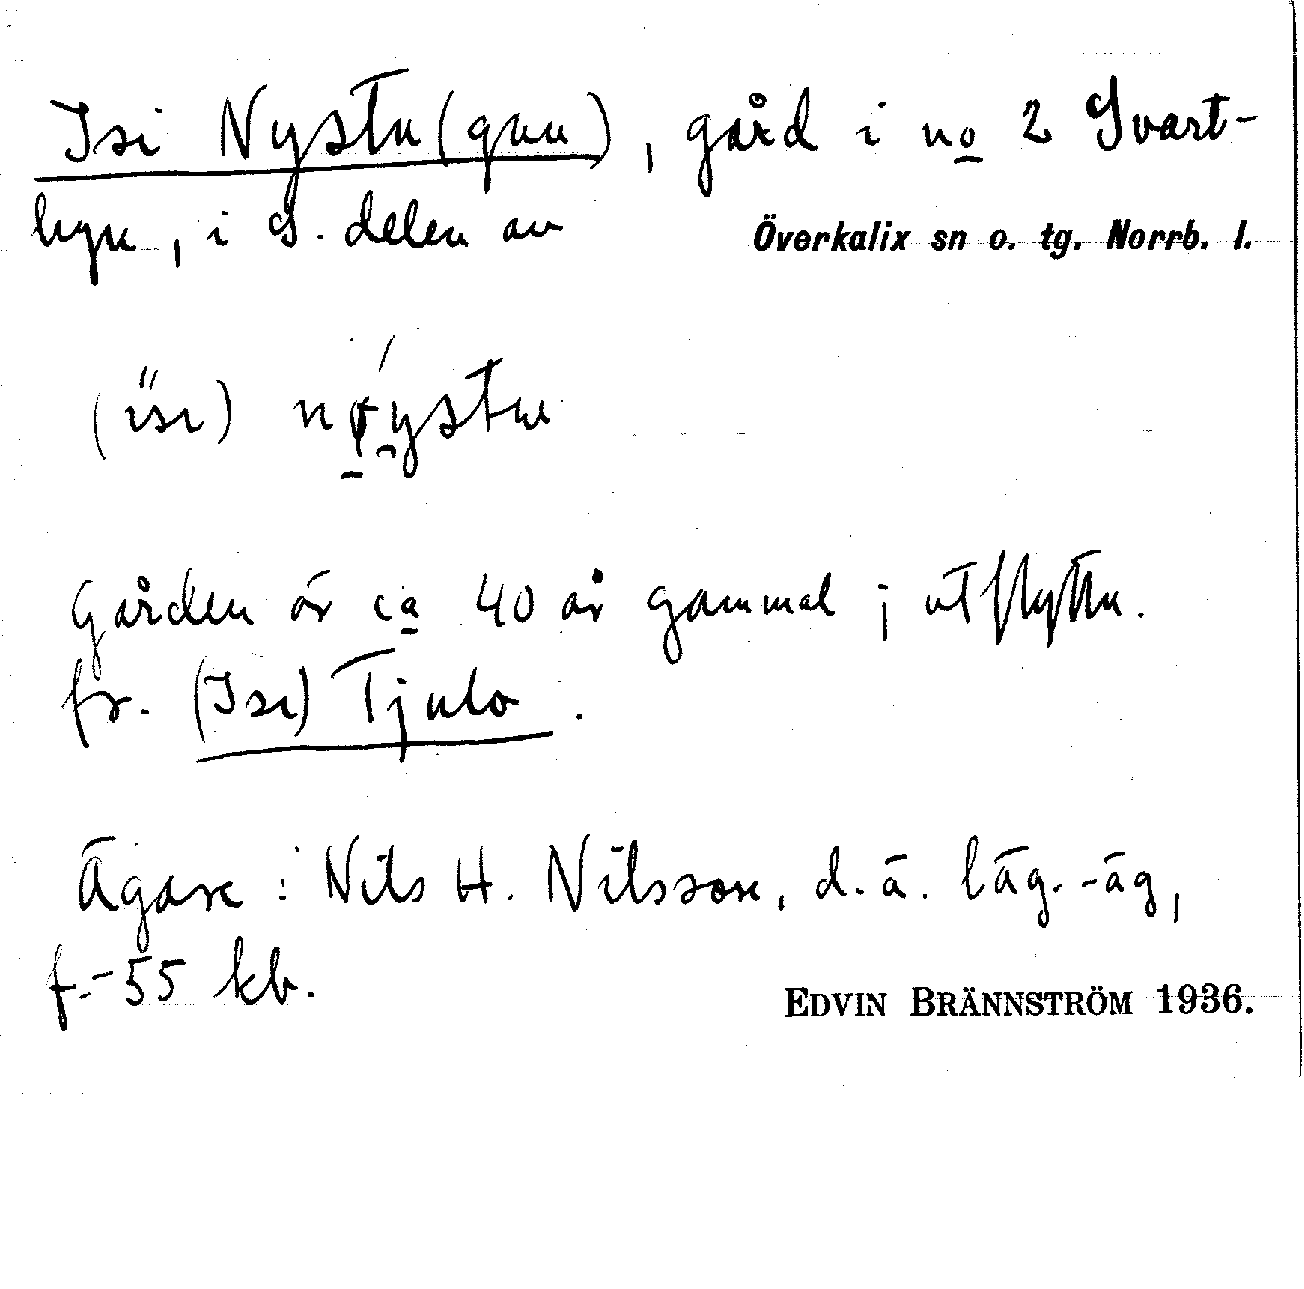 Isi Nystu(gun), gård i no 2 Svart-
byn, i S. delen av Överkalix sn o. tg. Norrb. l.
(isi) nøystu
Gården är ca 40 år gammal; utflyttn.
fr. (Isi) Tjulo.
Ägare: Nils H. Nilsson, d.ä. läg.-äg,
f.-55 kb.
EDVIN BRÄNNSTRÖM 1936.